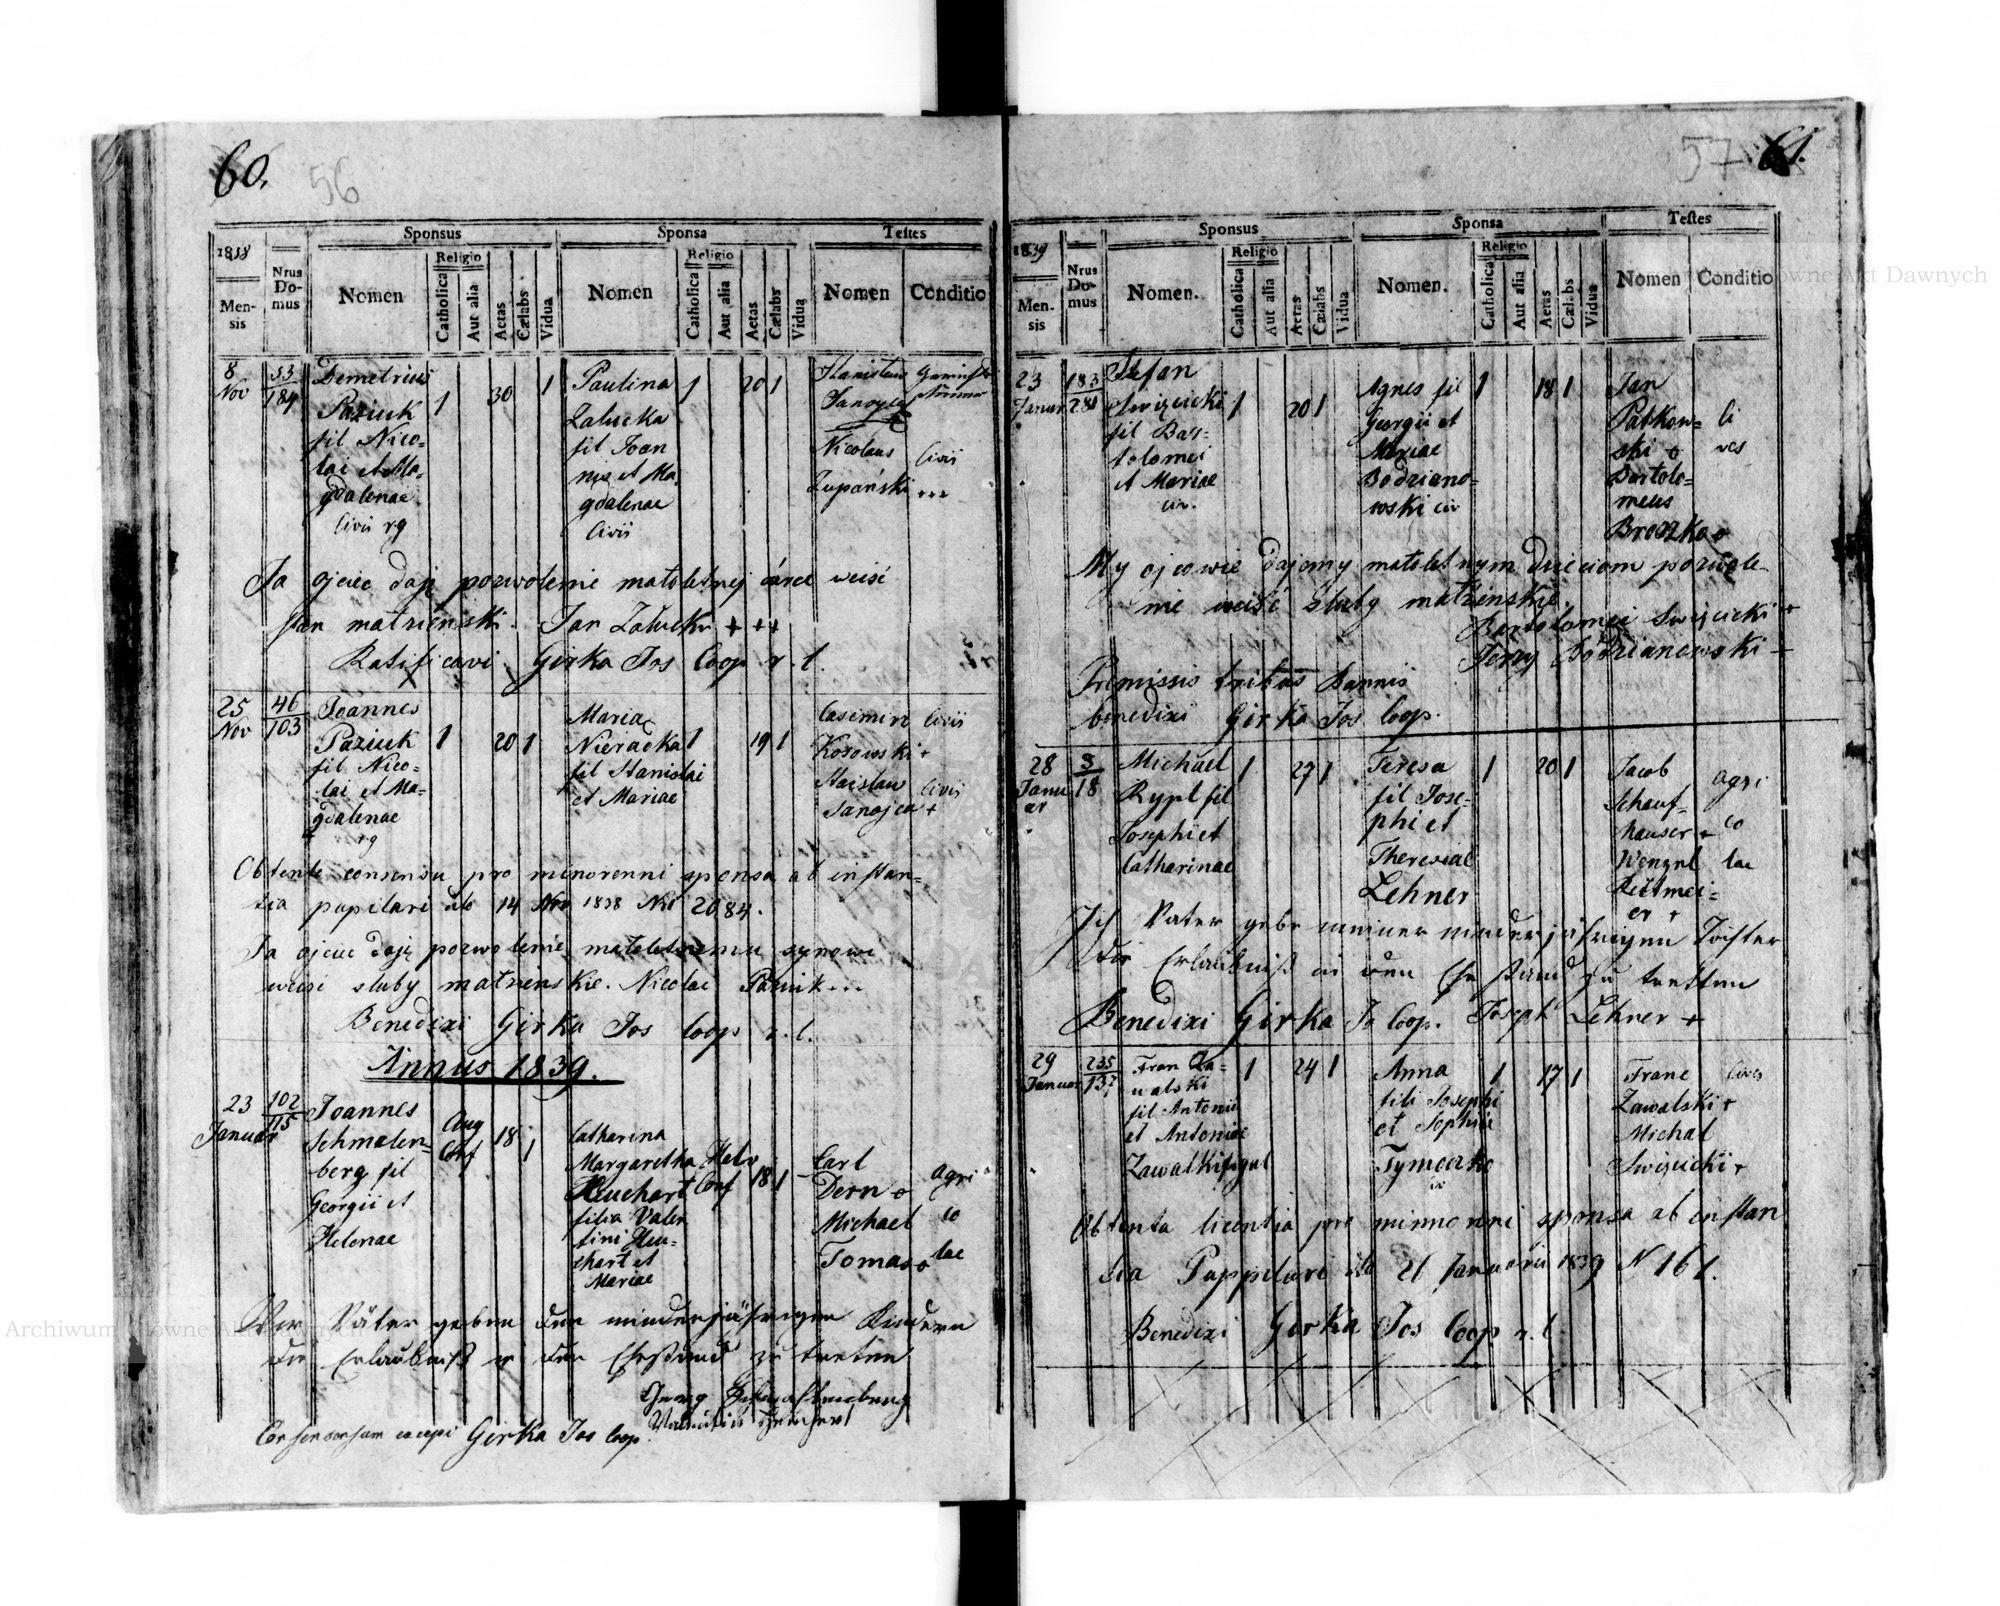 60. 56
1838
Mensis
Nrus Domus
Sponsus
Nomen
Religio
Catholica
Aut alia
Aetas
Cælabs
Vidua
Sponsa
Nomen
Religio
Catholica
Aut alia
Aetas
Cælabs
Vidua
Testes
Nomen
Conditio
8
Nov
53
184
Demetrius
Paziuk
fil Nico=
lai et Ma,
gdalenae
Civis rg
1 30 1
Paulina
Zalucka
fil Joan
nis et Ma,
gdalenae
Civii
1 20 1
Stanislaus
Sanojca
Nicolaus
Zupański
Civii
+++
Ja ojciec daję pozwolenie małoletnej córce weiść
stan malzienski. Jan Zalucki + + +
Ratificavi Girka Jos Coop r. l.
25
Nov
46
103
Joannes
Paziuk
fil Nico=
lai et Ma=
gdalenae
rg
1 20 1
Maria
Nieradka
fil Stanislai
et Mariae
1 19 1
Casimir
Kosowski +
Staislau
Sanojca +
Civii
Civis
Obtento consensu pro minorenni sponsa ab instan=
tia pupilari ddo 14 Nov 1838 Nro 2084.
Ja ojciec daję pozwolenie małoletniemu synowi
weisć sluby malziens kie. Nicolai Paziuk +++
Benedixi Girka Jos Coop r. l.
Annus 1839.
23
Januar
102
115
Joannes
Schmalen=
berg fil
Georgii et
Helenae
Aug
Conf
18 1
Catharina
Margaretha
Heuchart
filia Valen
tini Heu=
chart et
Mariae
Helv
Conf
18 1
Carl
Dern o
Michael
Tomas o
agri
co
lae
Wir Väter geben den minderjährigen Kindern
die Erlaubniß in den Ehestand zu treten
Georg Schmahlenberg
Consensum accepi Girka Jos Coop.
57 61.
1839
Mensis
Nrus Domus
Sponsus
Nomen.
Religio
Catholica
Aut alia
Aetas
Cælabs
Vidua
Sponsa
Nomen.
Religio
Catholica
Aut alia
Aetas
Cælabs
Vidua
Testes
Nomen
Conditio
23
Januar
183
281
Stefan
Swięcicki
fil Bar=
tolomei
et Mariae
civ.
1 20 1
Agnes fil
Georgii et
Mariae
Bodziano=
wski civ
1 18 1
Jan
Patkow=
ski o
Bartolo=
meus
Broszko o
Ci
ves
My ojcowie dajemy małoletnym dzieciom pozwole-
nie weiść śluby małżenskie.
Bartolomei Swięcicki +
Jerzy Bodzianowski +
Premissis tribus bannis
benedixi Girka Jos Coop.
28
Janu
ar
3
18
Michael
Rypl fil
Josephi et
Catharinae
1 27 1
Teresa
fil Jose=
phi et
Theresiae
Lehner
1 20 1
Jacob
Schauf=
hauser +
Wenzel
Reittmei=
er +
agri
co
lae
Ich Vater gebe meiner minderjährigen Tochter
die Erlaubniß in den Ehestand zu tretten
Benedixi Girka Jo Coop. Joseph Lehner +
29
Januar
235
137
Fran Za=
walski
fil Antonii
et Antoniae
Zawalki figul
1 24 1
Anna
fili Josephi
et Sophiae
Tymoczko
1 17 1
Franc
Zawalski +
Michal
Swięcicki +
Cives
Obtenta licentia pro minnorenni sponsa ab instan
tia Puppilari ddo 21 Januarii 1839 N 161.
Benedixi Girka Jos Coop r. l.
Archiwum Główne Akt Dawnych
Archiwum Główne Akt Dawnych